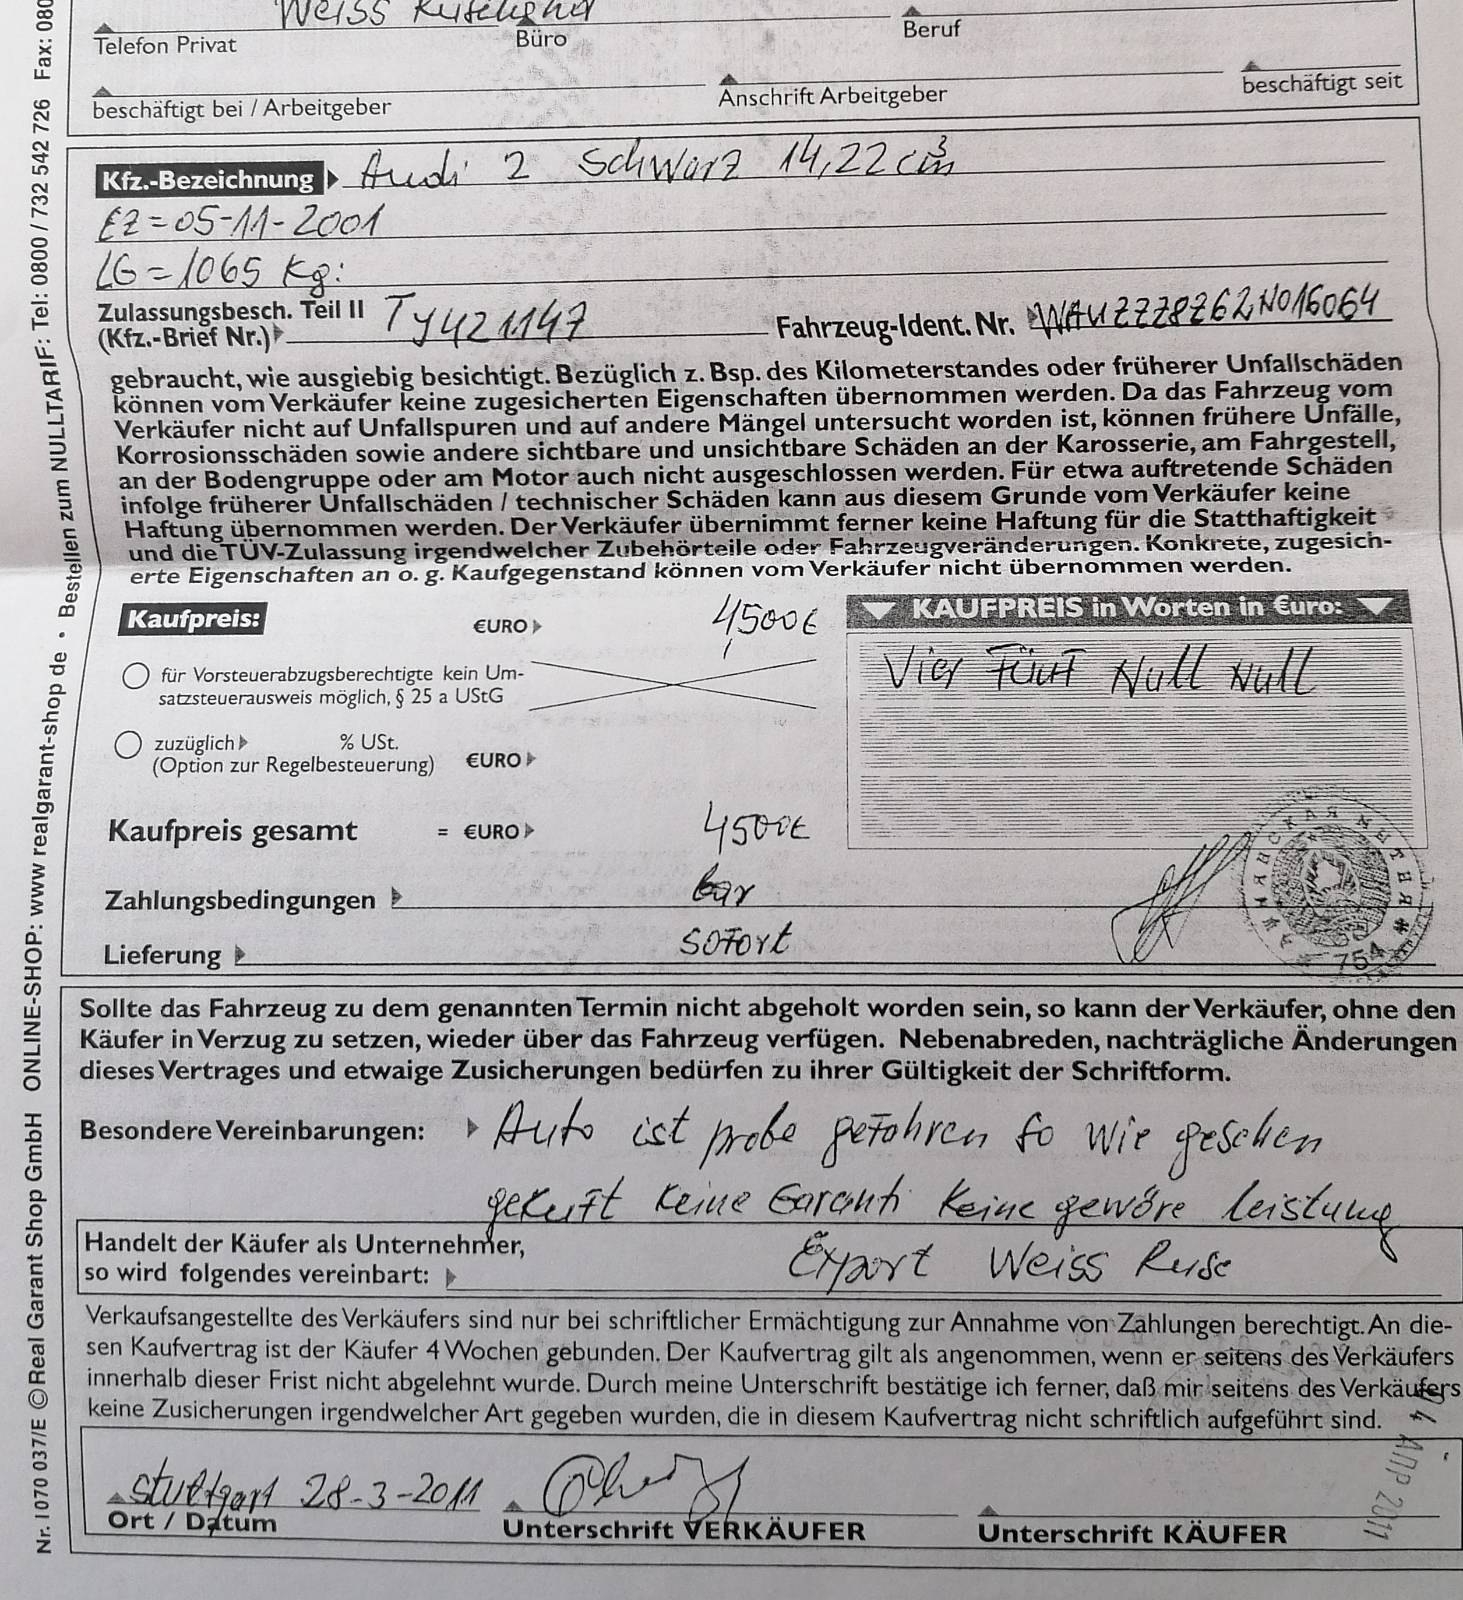 Weiss
Telefon Privat
Büro
Beruf
beschäftigt bei / Arbeitgeber
Anschrift Arbeitgeber
beschäftigt seit
Kfz.-Bezeichnung Audi 2 Schwarz 14,22 cm³
EZ = 05-11-2001
LG = 1065 Kg:
Zulassungsbesch. Teil II
(Kfz.-Brief Nr.) Ty421147
Fahrzeug-Ident. Nr. WAUZZZ8Z62N016064
gebraucht, wie ausgiebig besichtigt. Bezüglich z. Bsp. des Kilometerstandes oder früherer Unfallschäden
können vom Verkäufer keine zugesicherten Eigenschaften übernommen werden. Da das Fahrzeug vom
Verkäufer nicht auf Unfallspuren und auf andere Mängel untersucht worden ist, können frühere Unfälle,
Korrosionsschäden sowie andere sichtbare und unsichtbare Schäden an der Karosserie, am Fahrgestell,
an der Bodengruppe oder am Motor auch nicht ausgeschlossen werden. Für etwa auftretende Schäden
infolge früherer Unfallschäden / technischer Schäden kann aus diesem Grunde vom Verkäufer keine
Haftung übernommen werden. Der Verkäufer übernimmt ferner keine Haftung für die Statthaftigkeit
und die TÜV-Zulassung irgendwelcher Zubehörteile oder Fahrzeugveränderungen. Konkrete, zugesich-
erte Eigenschaften an o. g. Kaufgegenstand können vom Verkäufer nicht übernommen werden.
Kaufpreis: €URO 4500€
KAUFPREIS in Worten in €uro:
Vier Fünf Null Null
für Vorsteuerabzugsberechtigte kein Um-
satzsteuerausweis möglich, § 25 a UStG
zuzüglich % USt.
(Option zur Regelbesteuerung) €URO
Kaufpreis gesamt = €URO 4500€
Zahlungsbedingungen bar
Lieferung sofort
754
Sollte das Fahrzeug zu dem genannten Termin nicht abgeholt worden sein, so kann der Verkäufer, ohne den
Käufer in Verzug zu setzen, wieder über das Fahrzeug verfügen. Nebenabreden, nachträgliche Änderungen
dieses Vertrages und etwaige Zusicherungen bedürfen zu ihrer Gültigkeit der Schriftform.
Besondere Vereinbarungen: Auto ist probe gefahren so wie gesehen
gekuift keine Garanti keine gewöre leistung
Handelt der Käufer als Unternehmer,
so wird folgendes vereinbart: Export Weiss Ruse
Verkaufsangestellte des Verkäufers sind nur bei schriftlicher Ermächtigung zur Annahme von Zahlungen berechtigt. An die-
sen Kaufvertrag ist der Käufer 4 Wochen gebunden. Der Kaufvertrag gilt als angenommen, wenn er seitens des Verkäufers
innerhalb dieser Frist nicht abgelehnt wurde. Durch meine Unterschrift bestätige ich ferner, daß mir seitens des Verkäufers
keine Zusicherungen irgendwelcher Art gegeben wurden, die in diesem Kaufvertrag nicht schriftlich aufgeführt sind.
04 АПР 2011
Stuttgart 28-3-2011
Ort / Datum
Unterschrift VERKÄUFER
Unterschrift KÄUFER
Nr. I 070 037/E ©Real Garant Shop GmbH ONLINE-SHOP: www realgarant-shop de • Bestellen zum NULLTARIF: Tel: 0800 / 732 542 726 Fax: 080